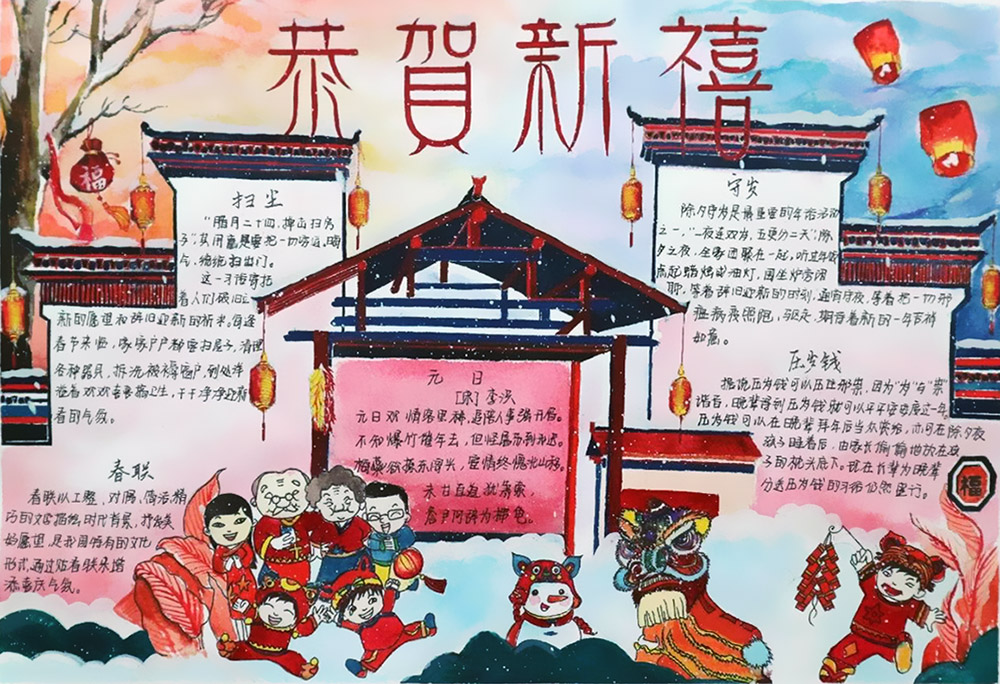 恭贺新禧
福
扫尘
"腊月二十四，掸尘扫房
子"其用意是要把一切穷运，晦
气，统统扫出门。
这一习俗寄托
着人们破旧立
新的愿望和辞旧迎新的祈求，每逢
春节来临，家家户户都要打扫屋子，清理
各种器具，拆洗被褥窗户，到处洋
溢着欢欢喜喜搞卫生，干干净净迎新
春的气氛。
春联
春联以工整，对偶，简洁精
巧的文字描绘时代背景，抒发美
好愿望，是我国特有的文化
形式，通过贴春联来增
添喜庆气氛。
元日
[宋]李洪
元日欢情
不知爆竹
未甘白道
守岁
除夕守岁是最重要的年俗活动
之一，"一夜连双岁，五更分二天"，除
夕之夜，全家团聚在一起，吃过年夜饭
点起蜡烛或油灯，围坐炉旁闲
聊，等着辞旧迎新的时刻，通宵守夜，等着把一切邪
瘟病疫照跑，驱走，期待着新的一年吉祥
如意。
压岁钱
据说压岁钱可以压住邪祟，因为"岁"与"祟"
谐音，晚辈得到压岁钱就可以平平安安度过一年
压岁钱可以在晚辈拜年后当众赏给，亦可在除夕夜
孩子睡着后，由家长偷偷地放在孩
子的枕头底下，现在长辈为晚辈
分送压岁钱的习俗仍然盛行。
福